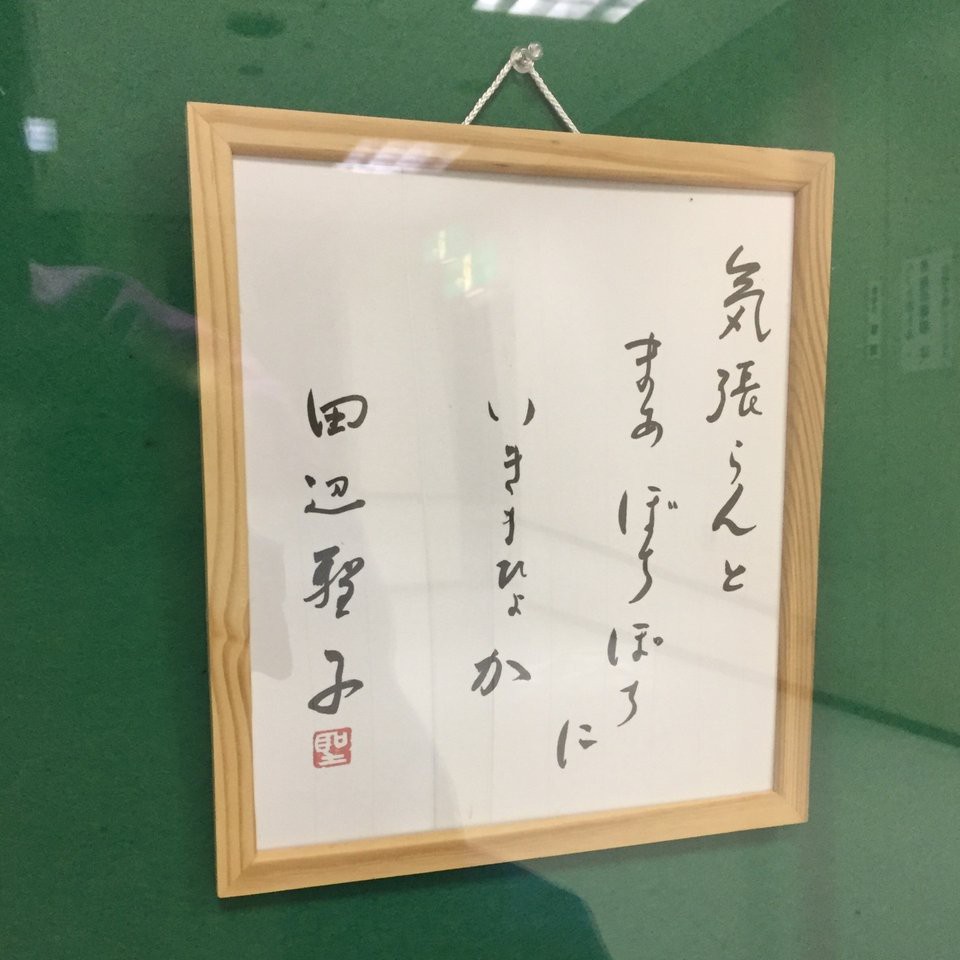 気張らんと
まあぼちぼちに
いきまひょか
田辺聖子
聖